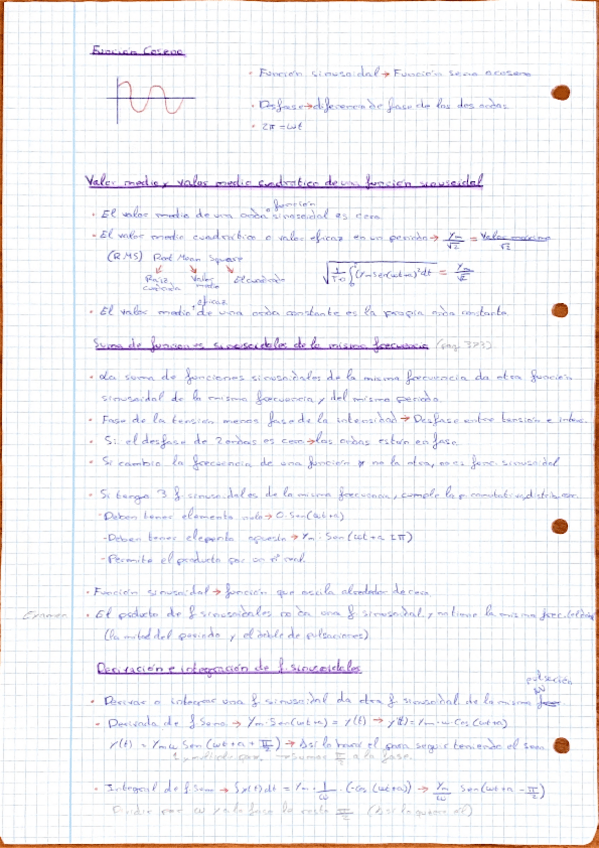 Función Coseno
• Función sinusoidal → Función seno o coseno
• Desfase → diferencia de fase de las dos ondas
• 2π = ωt
Valor medio y valor medio cuadrático de una función sinusoidal
función
• El valor medio de una onda sinusoidal es cero
• El valor medio cuadrático o valor eficaz en un periodo → Ym/√2 = Valor máximo/√2
(RMS) Root Mean Square
Raiz cuadrada Valor medio El cuadrado
eficaz
• El valor medio de una onda constante es la propia onda constante
Suma de funciones sinusoidales de la misma frecuencia (pag. 373)
• La suma de funciones sinusoidales de la misma frecuencia da otra función
sinusoidal de la misma frecuencia y del mismo periodo.
• Fase de la tensión menos fase de la intensidad → Desfase entre tensión e intens.
• Si el desfase de 2 ondas es cero → las ondas están en fase
• Si cambio la frecuencia de una función y no la otra, no es func. sinusoidal
• Si tengo 3 f. sinusoidales de la misma frecuencia, cumple la p. conmutativa, distri,
- Deben tener elemento → 0·Sen(ωt+α)
- Deben tener elemento opuesto → Ym · Sen(ωt+α 2π)
- Permite el producto por un nº real
• Función sinusoidal → función que oscila alrededor de cero
Examen • El producto de f sinusoidales no da una f sinusoidal, y no tiene la misma frec.
(la mitad del periodo y el doble de pulsaciones)
Derivación e integración de f sinusoidales
pulsación
ω
• Derivar o integrar una f. sinusoidal da otra f sinusoidal de la misma
• Derivada de f Seno → Ym·Sen(ωt+α) = y(t) → y'(t) = Ym·ω·Cos(ωt+α)
y'(t) = Ym ω Sen(ωt+α+π/2) → Así lo hace el para seguir teniendo el seno
Sumar π/2 a la fase.
• Integral de f Sen → ∫y(t)dt = Ym · 1/ω · (-Cos(ωt+α)) → Ym/ω Sen(ωt+α - π/2)
Dividir por ω y a la fase le resta π/2